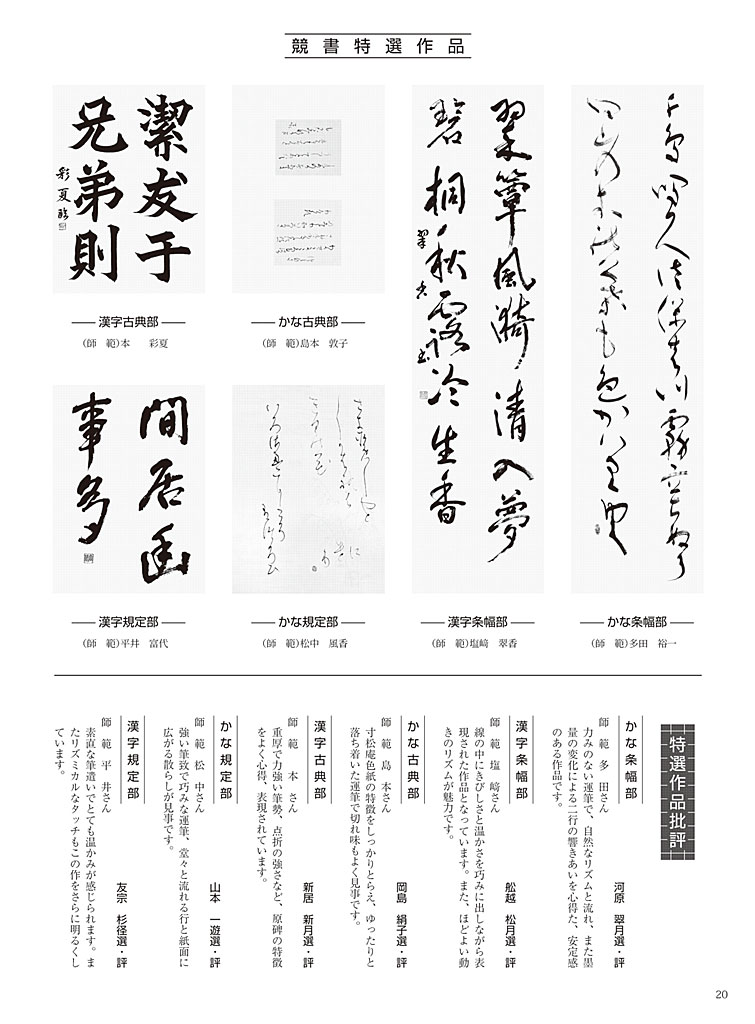 競書特選作品
潔友于
兄弟則
彩夏臨
漢字古典部
(師　範)本　　彩夏
かな古典部
(師　範)島本　敦子
間居幽
事多
漢字規定部
(師　範)平井　富代
かな規定部
(師　範)松中　風香
翠簟風漪清入夢
碧梧秋露冷生香
漢字条幅部
(師　範)塩﨑　翠香
かな条幅部
(師　範)多田　裕一
特選作品批評
かな条幅部
河原　翠月選・評
師　範　多　田さん
力みのない運筆で、自然なリズムと流れ、また墨
量の変化による二行の響きあいを心得た、安定感
のある作品です。
漢字条幅部
舩越　松月選・評
師　範　塩　﨑さん
線の中にきびしさと温かさを巧みに出しながら表
現された作品となっています。また、ほどよい動
きのリズムが魅力です。
かな古典部
岡島　絹子選・評
師　範　島　本さん
寸松庵色紙の特徴をしっかりとらえ、ゆったりと
落ち着いた運筆で切れ味もよく見事です。
漢字古典部
新居　新月選・評
師　範　本　さん
重厚で力強い筆勢、点折の強さなど、原碑の特徴
をよく心得、表現されています。
かな規定部
山本　一遊選・評
師　範　松　中さん
強い筆致で巧みな運筆、堂々と流れる行と紙面に
広がる散らしが見事です。
漢字規定部
友宗　杉径選・評
師　範　平　井さん
素直な筆遣いでとても温かみが感じられます。ま
たリズミカルなタッチもこの作をさらに明るくし
ています。
20